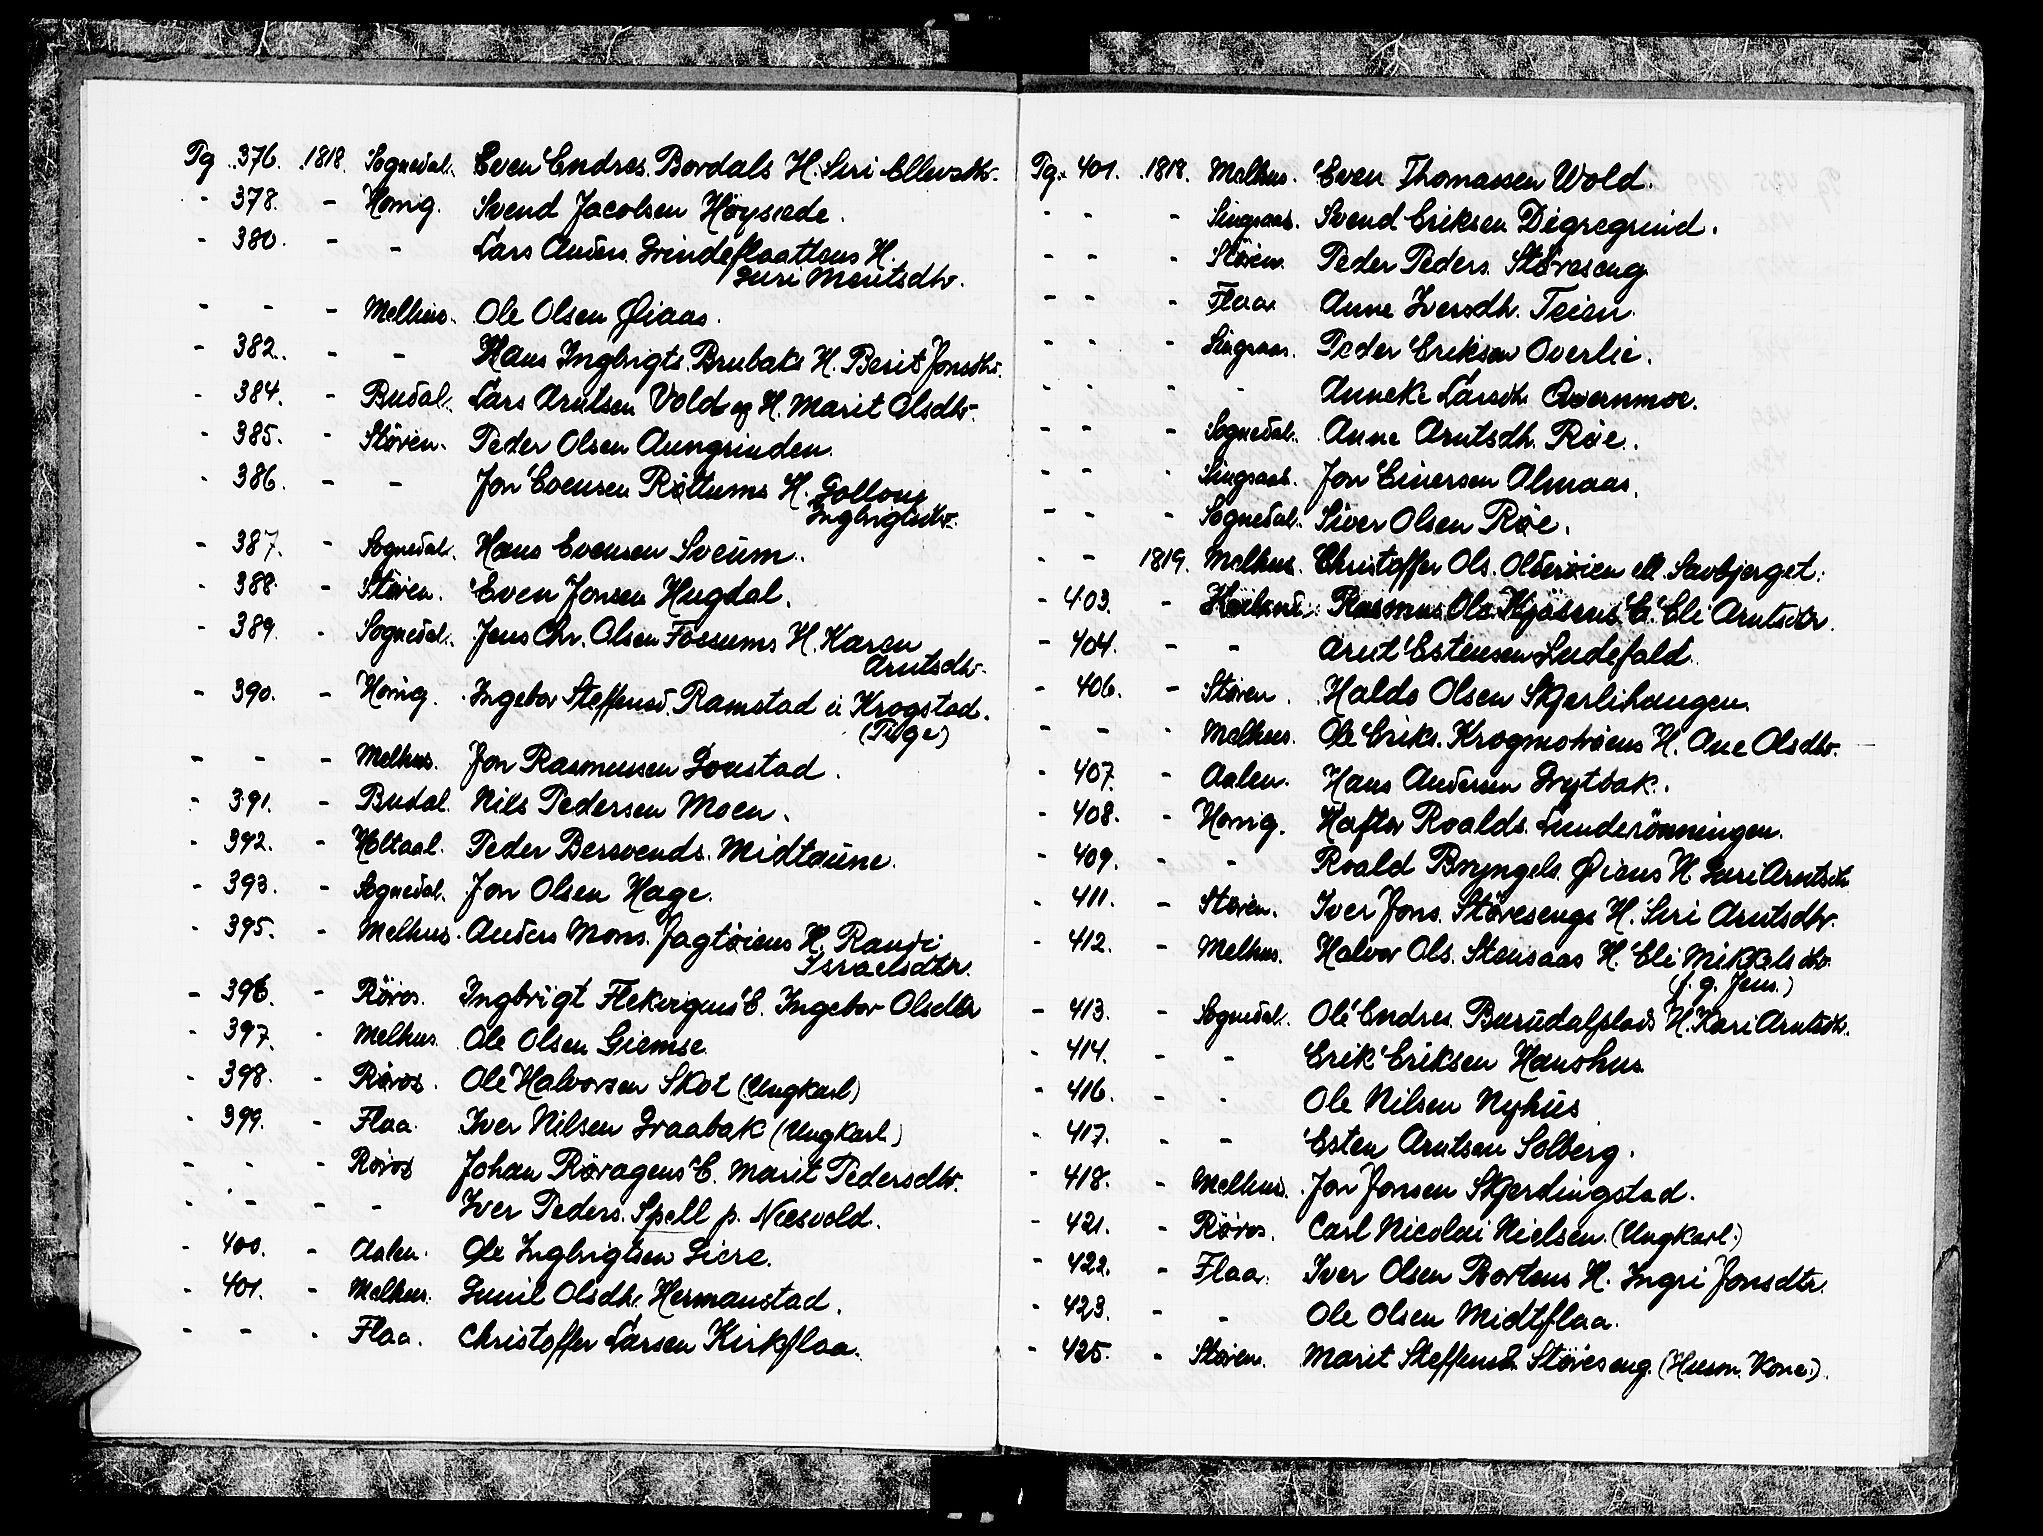 Pg. 376. 1818. Sognedal. Even Endres. Bordals H. Siri Ellevsdtr.
- 378. - Horrig. Svend Jacobsen Høysæde.
- 380. - - Lars Anders. Grindeflaattens H.
Guri Arntsdtr.
- - - Melhus. Ole Olsen Øiaas.
- 382. - - Hans Ingbrigts. Brubaks H. Berit Jonsdtr.
- 384. - Budal. Lars Arntsen Volds og H. Marit Olsdtr.
- 385. - Støren. Peder Olsen Aungrinden.
- 386. - - Jon Evensen Røttums H. Gollaug
Ingbrigtsdtr.
- 387. - Sognedal. Hans Evensen Sveum.
- 388. - Støren. Even Jonsen Hugdal.
- 389. - Sognedal. Jens Chr. Olsen Fossums H. Karen
Arntsdtr.
- 390. - Horrig. Ingebor Steffensd. Ramstad ei Krogstad.
(Pige)
- - - Melhus. Jon Rasmussen Loustad.
- 391. - Budal. Nils Pedersen Moen.
- 392. - Holtaal. Peder Bersvends. Midtaune.
- 393. - Sognedal. Jon Olsen Hage.
- 395. - Melhus. Anders Mons. Jagtøiens H. Randi
Israelsdtr.
- 396. - Røros. Ingbrigt Flekvigens E. Ingebor Olsdtr
- 397. - Melhus. Ole Olsen Giemse.
- 398. - Røros. Ole Halvorsen Skot (Ungkarl)
- 399. - Flaa. Iver Nilsen Graabak (Ungkarl)
- - - Røros Johan Røragens E. Marit Pedersdtr.
- - - - Iver Peders. Spell p. Næsvold.
- 400. - Aalen. Ole Ingbrigtsen Liere.
- 401. - Melhus. Gunil Olsdtr. Hermanstad.
- - - Flaa. Christoffer Larsen Kirkflaa.
Pg. 401. 1818. Melhus. Even Thomassen Wold.
- - - Singsaas. Svend Eriksen Digregrind.
- - - Støren. Peder Peders. Støreseng
- - - Flaa Anne Iversdtr. Teien.
- - - Singsaas. Peder Eriksen Overlie.
- - - - Anneke Larsdtr Qvernmoe.
- - - Sognedal. Anne Arntsdtr. Røe.
- - - Singsaas. Jon Einersen Almaas.
- - - Sognedal. Siver Olsen Røe.
- - 1819. Melhus. Christoffer Ols. Olderøien ell. Savbjerget.
- 403. - Rasmus Ols. Kjøsens E. Eli Arntsdtr.
- 404. - - Arnt Estensen Endefald.
- 406. - Støren. Haldo Olsen Skjerlihaugen.
- - - Melhus. Ole Eriks. Krogmotrøens H. Ane Olsdtr.
- 407. - Aalen. Hans Andersen Grytbak.
- 408. - Horrig. Haftor Roalds. Lunderønningen.
- 409. - - Roald Bryngels. Øiens H. Guri Arntsdtr
- 411. - Støren. Iver Jons. Støresengs H. Siri Arntsdtr.
- 412. - Melhus. Halvor Ols. Stensaas H. Eli Mikkelsdtr.
(f. g. Jens.)
- 413. - Sognedal. Ole Endres. Burudalplads H. Kari Arntsdtr.
- 414. - - Erik Eriksen Haushus
- 416. - - Ole Nilsen Nyhus
- 417. - - Esten Arntsen Solberg.
- 418. - Melhus. Jon Jonsen Skjerdingstad.
- 421. - Røros. Carl Nicolai Nielsen. (Ungkarl.)
- 422. - Flaa. Iver Olsen Bortens H. Ingri Jonsdtr.
- 423. - - Ole Olsen Midtflaa.
- 425. - Støren. Marit Steffensd. Støreseng. (Huusm. Kone.)